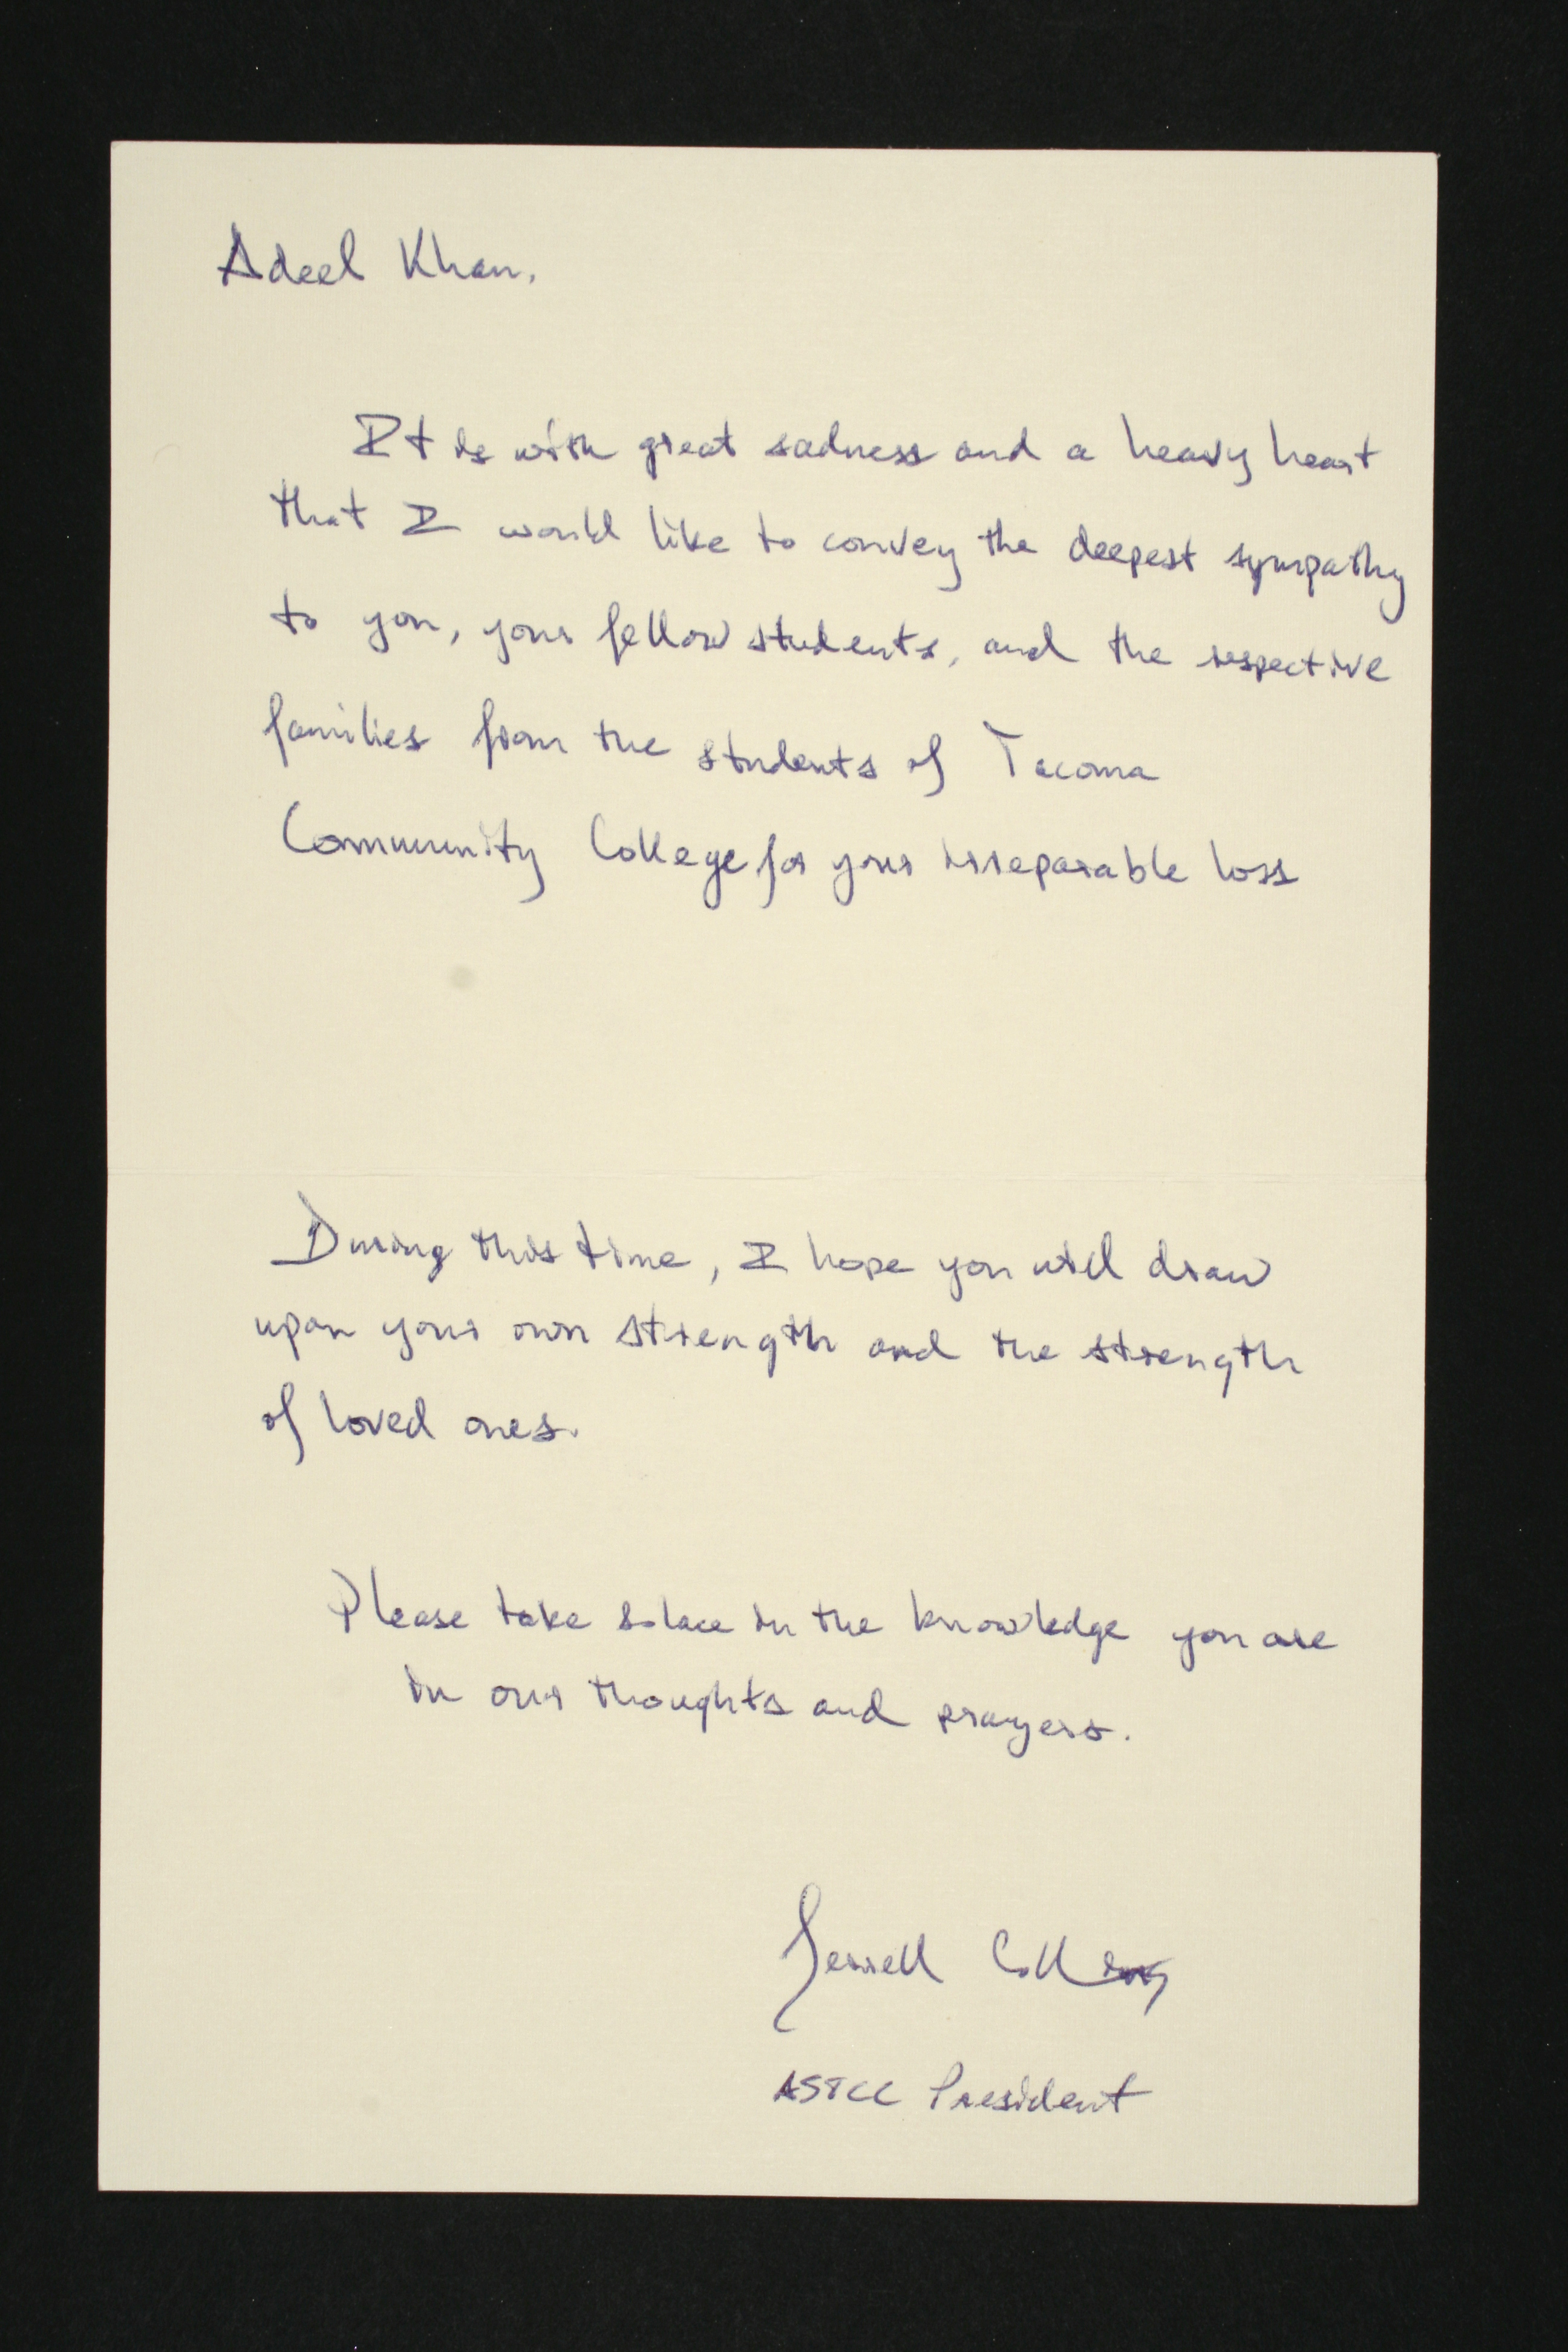 Adeel Khan,
It is with great sadness and a heavy heart
that I would like to convey the deepest sympathy
to you, your fellow students, and the respective
families from the students of Tacoma
Community College for your irreparable loss
During this time, I hope you will draw
upon your own strength and the strength
of loved ones.
Please take solace in the knowledge you are
in our thoughts and prayers.
ASTCC President